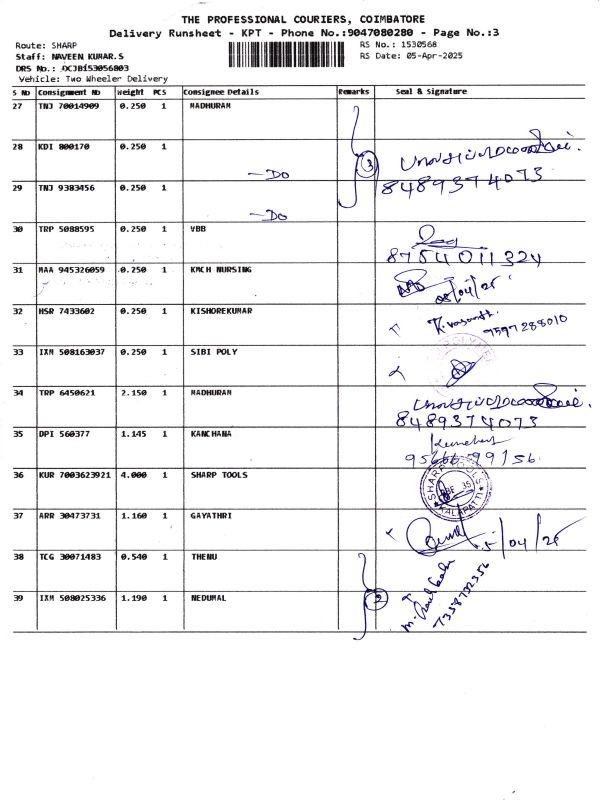 THE PROFESSIONAL COURIERS, COIMBATORE
Delivery Runsheet - KPT - Phone No.:9047080280 - Page No.:3
Route: SHARP
RS No.: 1530568
Staff: NAVEEN KUMAR.S
RS Date: 05-Apr-2025
DRS No.: DCJB153056803
Vehicle: Two Wheeler Delivery
S No Consignment No Weight PCS Consignee Details Remarks Seal & Signature
27 TNJ 70014909 0.250 1 MADHURAM
28 KDI 800170 0.250 1
3
-DO
8489374073
29 TNJ 9383456 0.250 1
-DO
30 TRP 5088595 0.250 1 VBB
8754011324
31 MAA 945326059 0.250 1 KMCH NURSING
05/04/25
32 HSR 7433602 0.250 1 KISHOREKUMAR
K.vasanth
9597288010
33 IXM 508163037 0.250 1 SIBI POLY
34 TRP 6450621 2.150 1 MADHURAM
8489374073
35 DPI 560377 1.145 1 KANCHANA
36 KUR 7003623921 4.000 1 SHARP TOOLS
SHARP TOOLS
CBE 35
KALAPATTI
37 ARR 30473731 1.160 1 GAYATHRI
5/04/25
38 TCG 30071483 0.540 1 THENU
39 IXM 508025336 1.190 1 NEDUMAL
7358732356